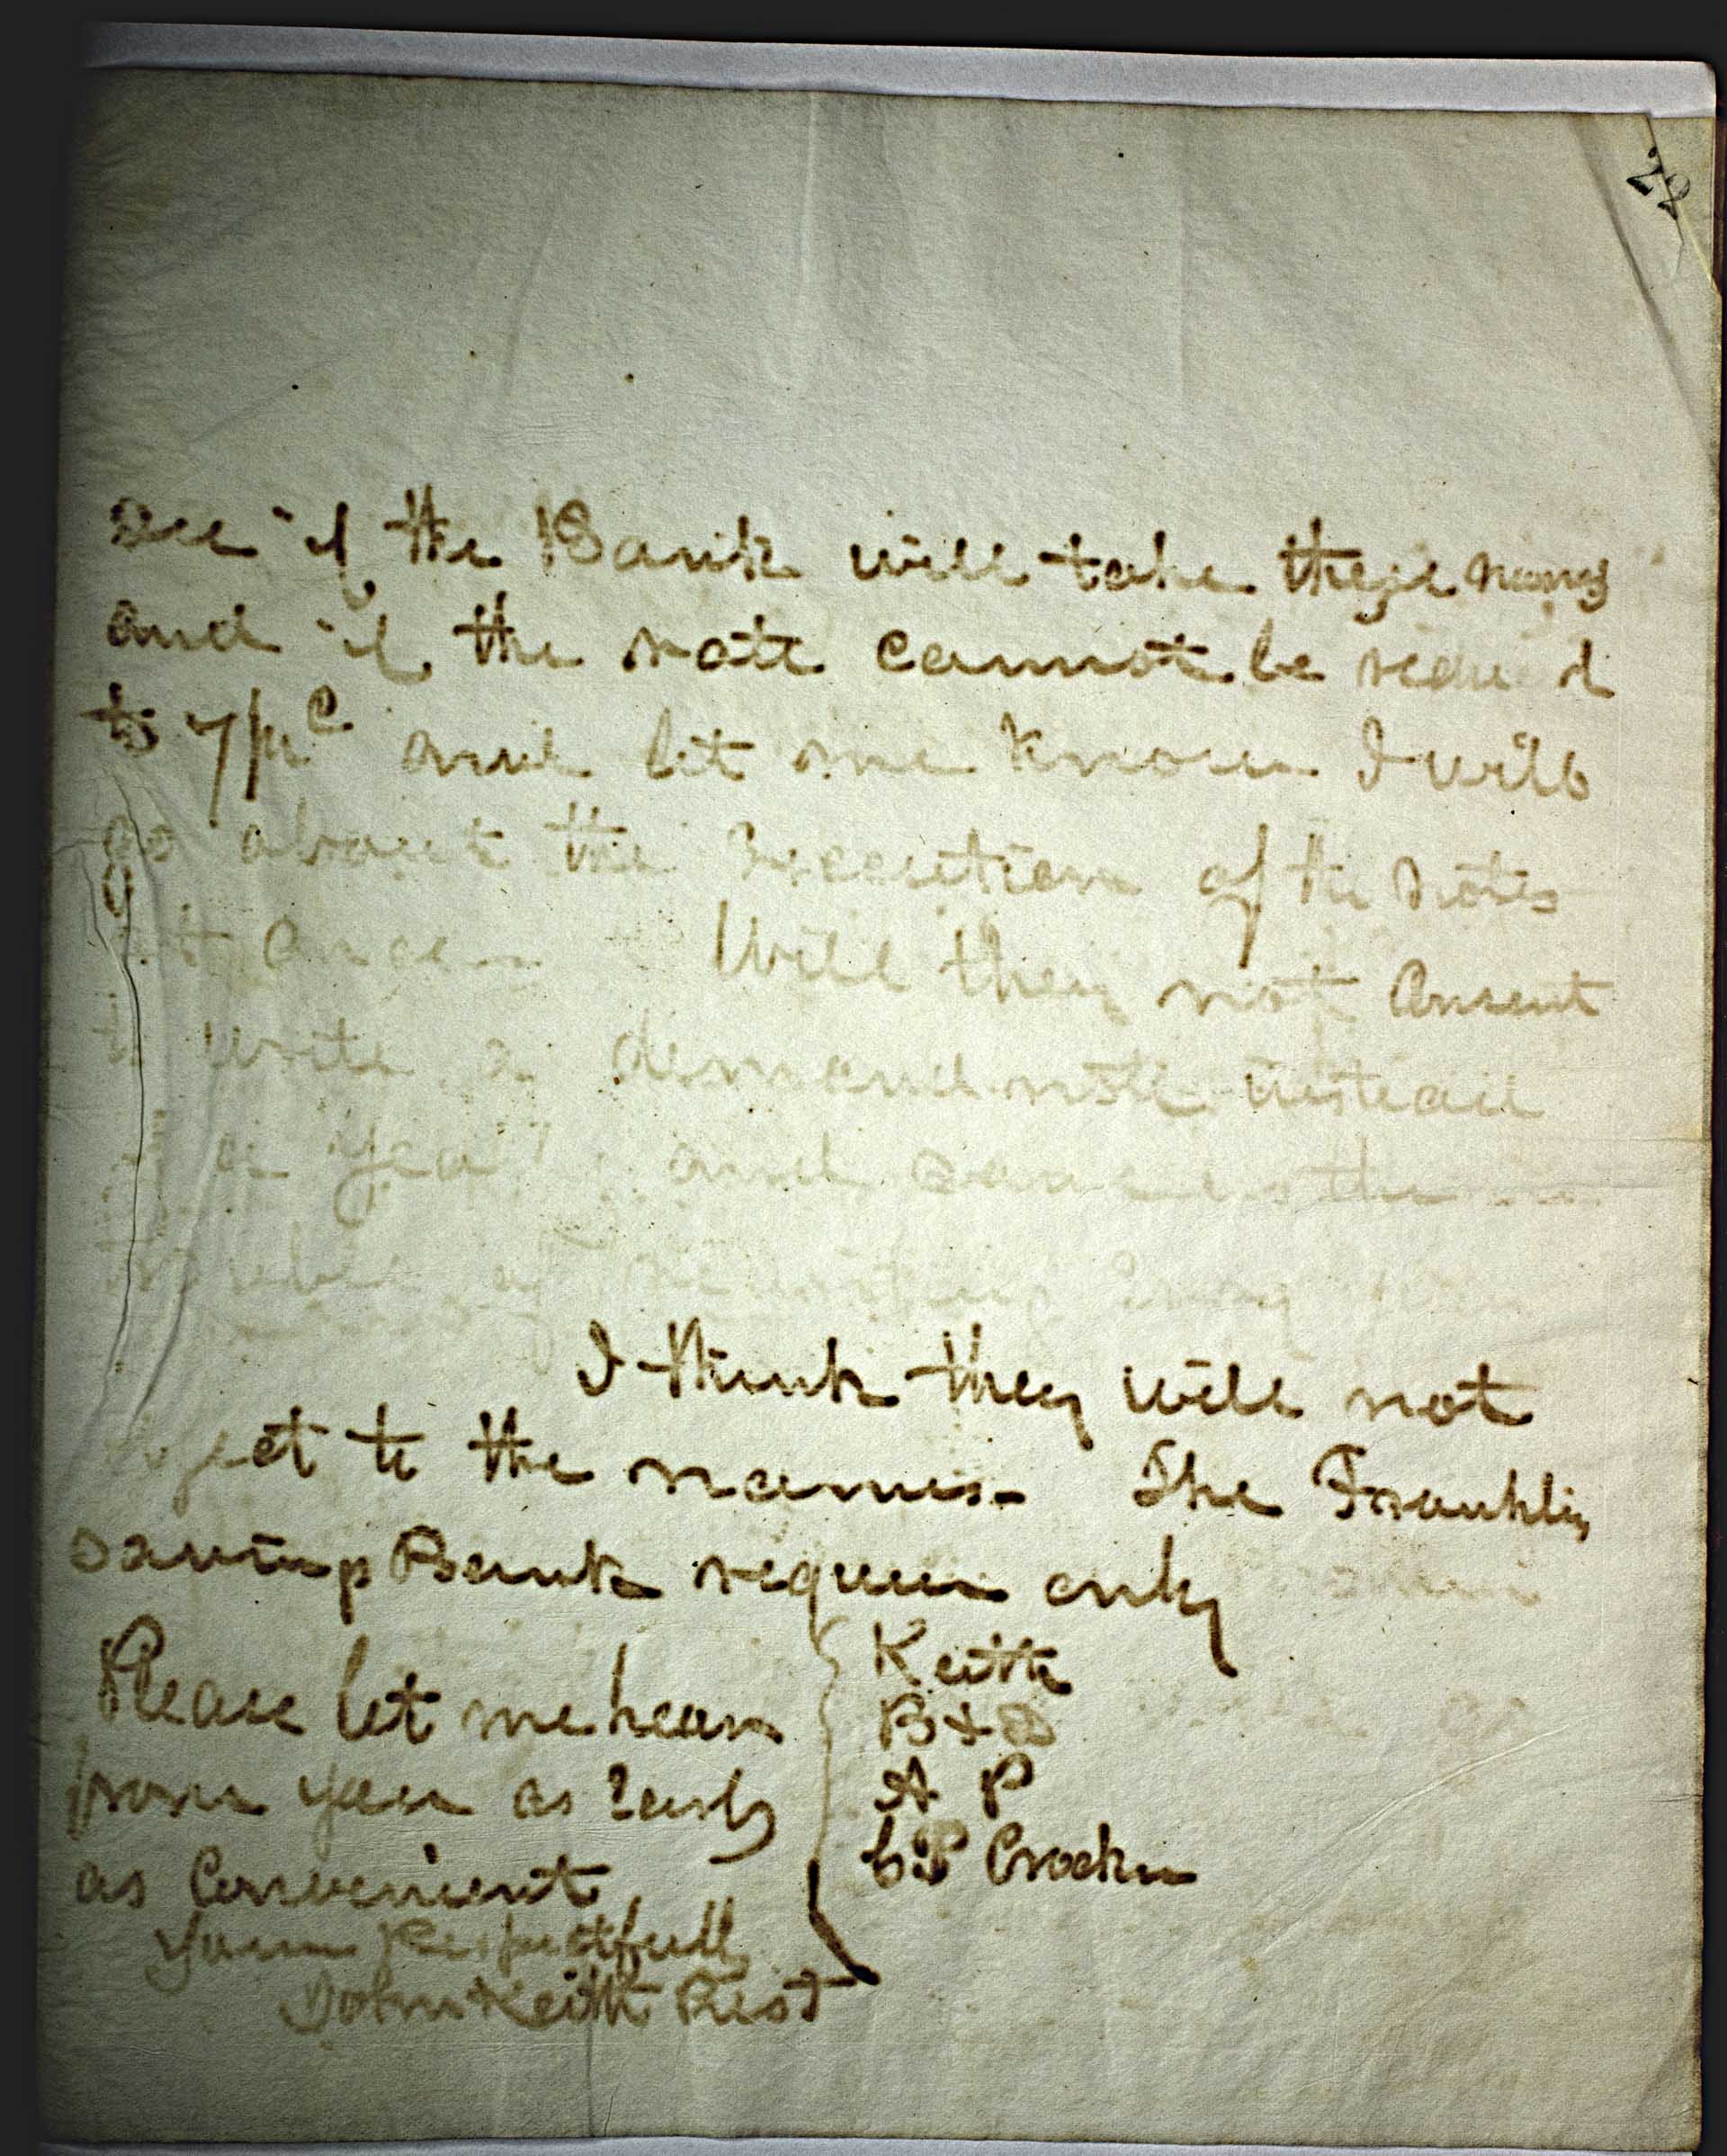 22
see if the Bank will take these names
and if the rate cannot be
to 7 p c and let me know I will
go about the Execution of the Notes
at once Will they not Consent
to write a demand note instead
a year and save us the
trouble of
I think they will not
object to the names. The Franklin
savings Bank require only
Keith
B & D
A P
C. P Crocker
Please let me hear
from you as Early
as Convenient
Yours Respectfully
John Keith Prest